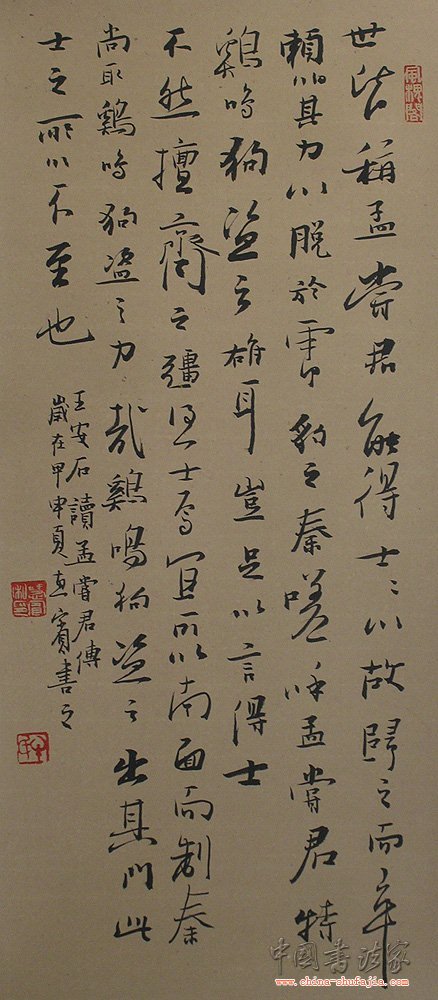 世皆稱孟嘗君能得士〻以故歸之而卒
賴以其力以脫於虎豹之秦嗟呼孟嘗君特
鷄鳴狗盜之雄耳豈足以言得士
不然擅齊之彊得一士焉宜可以南面而制秦
尚取鷄鳴狗盜之力哉鷄鳴狗盜之出其門此
士之所以不至也
王安石讀孟嘗君傳
歲在甲申夏直賓書之
中国书法家
www.china-shufajia.com